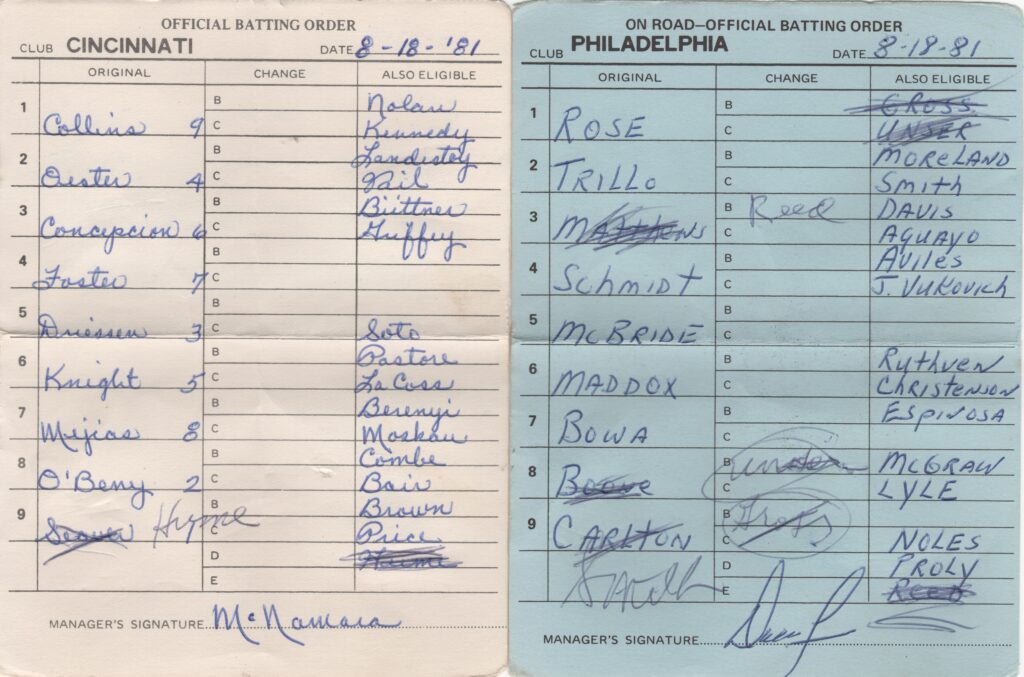 OFFICIAL BATTING ORDER
CLUB CINCINNATI DATE 8-18-'81
ORIGINAL CHANGE ALSO ELIGIBLE
1 Collins 9 B C Nolan
Kennedy
2 Oester 4 B C Landestoy
3 Concepcion 6 B C Biittner
Guffey
4 Foster 7 B C
5 Driessen 3 B C Soto
6 Knight 5 B C Pastore
LaCoss
7 Mejias 8 B C Berenyi
Moskau
8 O'Beny 2 B C Combe
Bair
9 Seaver Hume B C Brown
Price
D Hume
E
MANAGER'S SIGNATURE McNamara
ON ROAD—OFFICIAL BATTING ORDER
CLUB PHILADELPHIA DATE 8-18-81
ORIGINAL CHANGE ALSO ELIGIBLE
1 ROSE B C GROSS
UNSER
2 TRILLO B C MORELAND
Smith
3 MATTHEWS B Reed C DAVIS
AGUAYO
4 Schmidt B C AVILES
J. VUKOVICH
5 McBRIDE B C
6 MADDOX B C RUTHVEN
CHRISTENSON
7 BOWA B C ESPINOSA
8 Boone B Unser C McGRAW
LYLE
9 CARLTON B Gross C NOLES
Smith D PROLY
E REED
MANAGER'S SIGNATURE